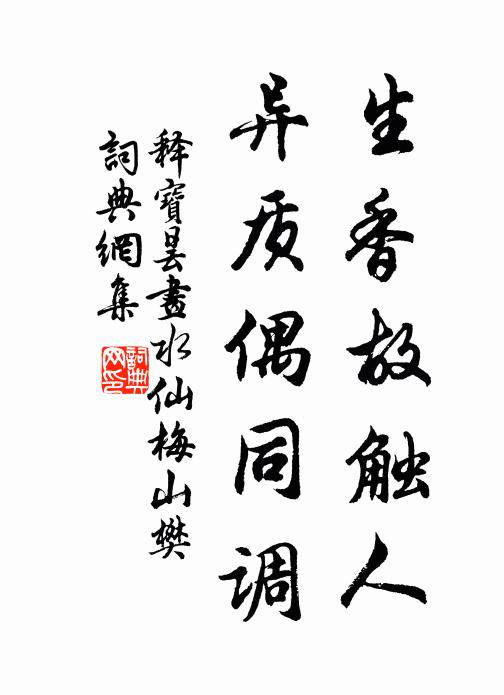 生香故触人
异质偶同调
释寶昙畫水仙梅山樊
詞典網集
詞典网印